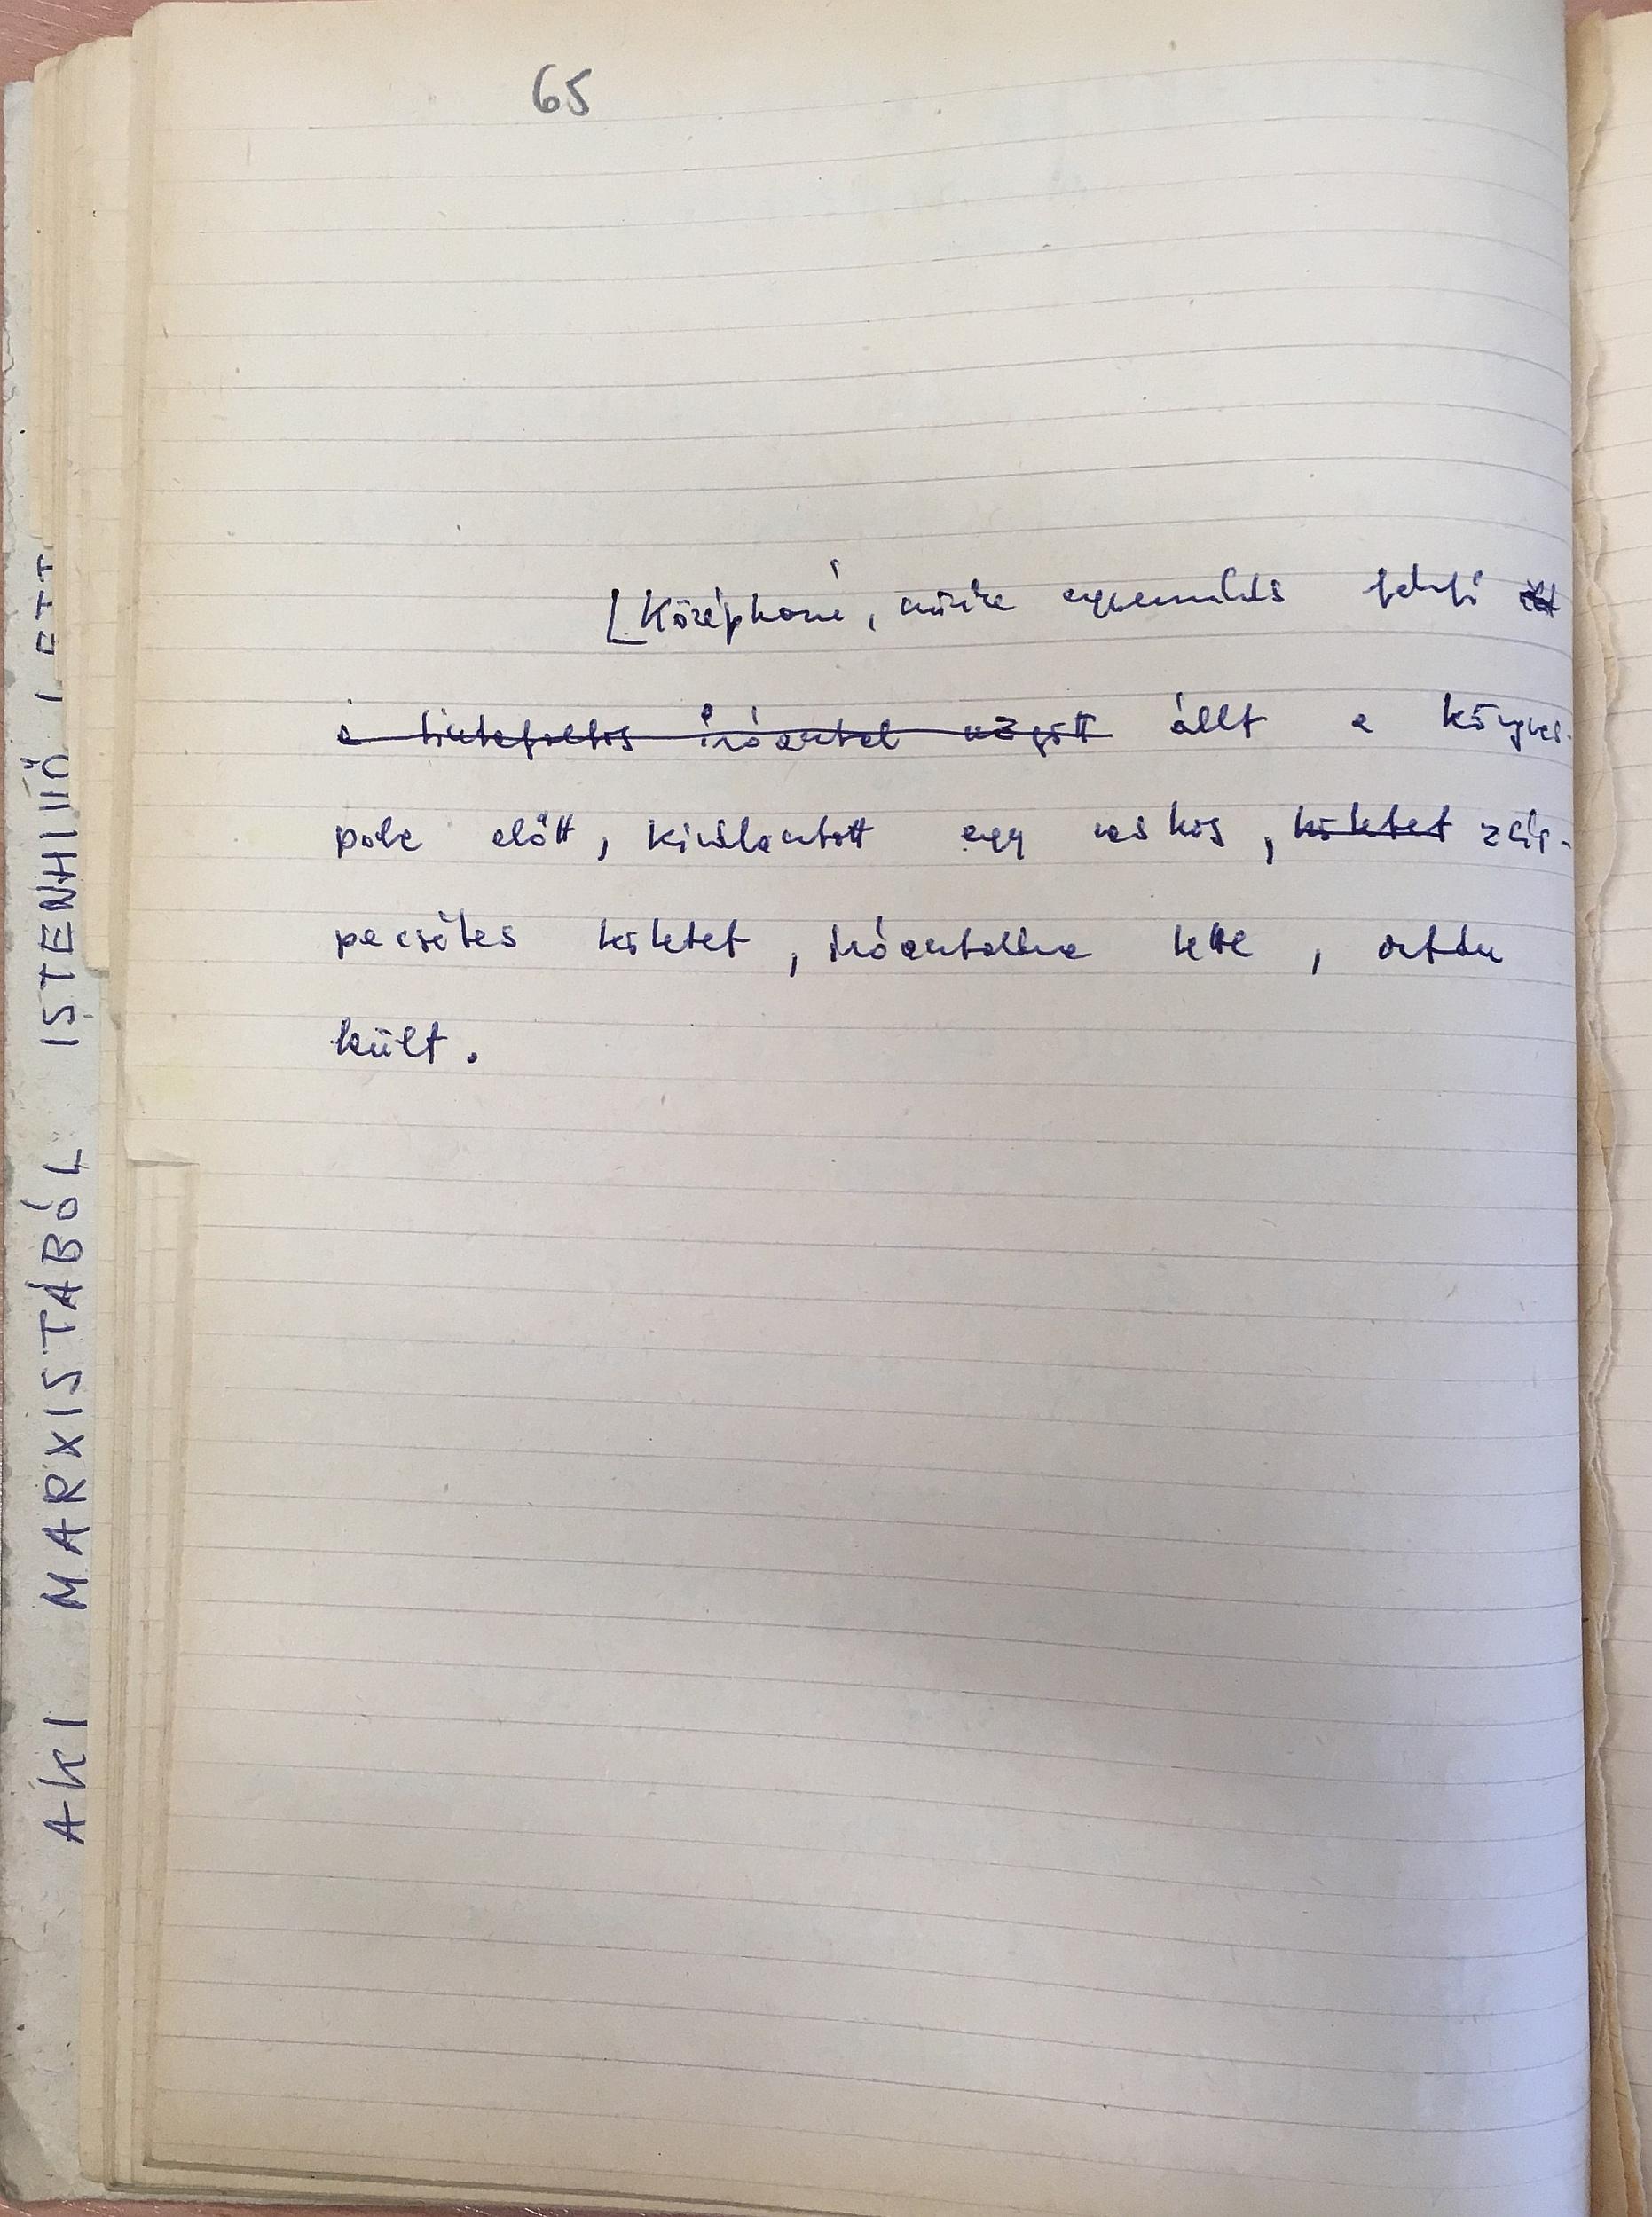 65
[Középkorú, őszülő egyenruhás férfi
a tintafoltos íróasztal mögött állt a könyves-
polc előtt, kiválasztott egy vaskos, kötetet zár-
pecsétes kötetet, íróasztalára tette,
leült.
AKI MARXISTÁBÓL ISTENHIVŐ LETT